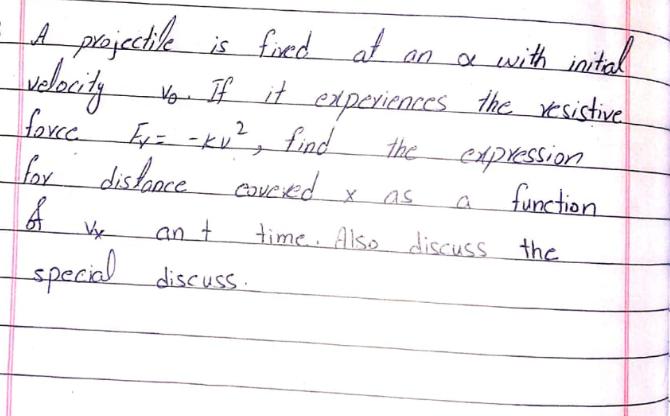 A projectile is fired at an α with initial
velocity v₀. If it experiences the resistive
force Fᵣ = -kv², find the expression
for distance covered x as a function
of vₓ an t time. Also discuss the
special discuss.